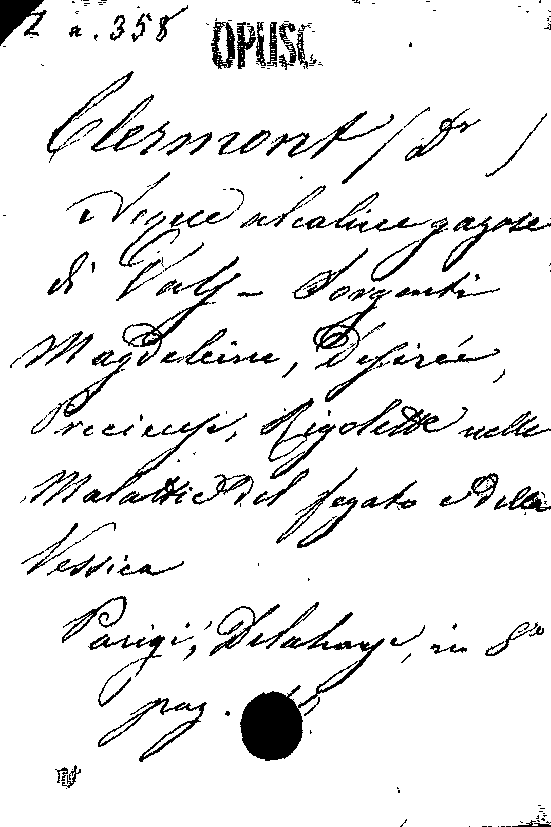 Z n. 358 OPUSC
Clermont (Dr)
Acque alcaline gazose
di Vals - Sorgenti
Magdeleine, Desirée,
Precieuse, Rigolette nelle
Malattie del fegato e della
Vessica
Parigi, Delahaye, in 8vo
pag.